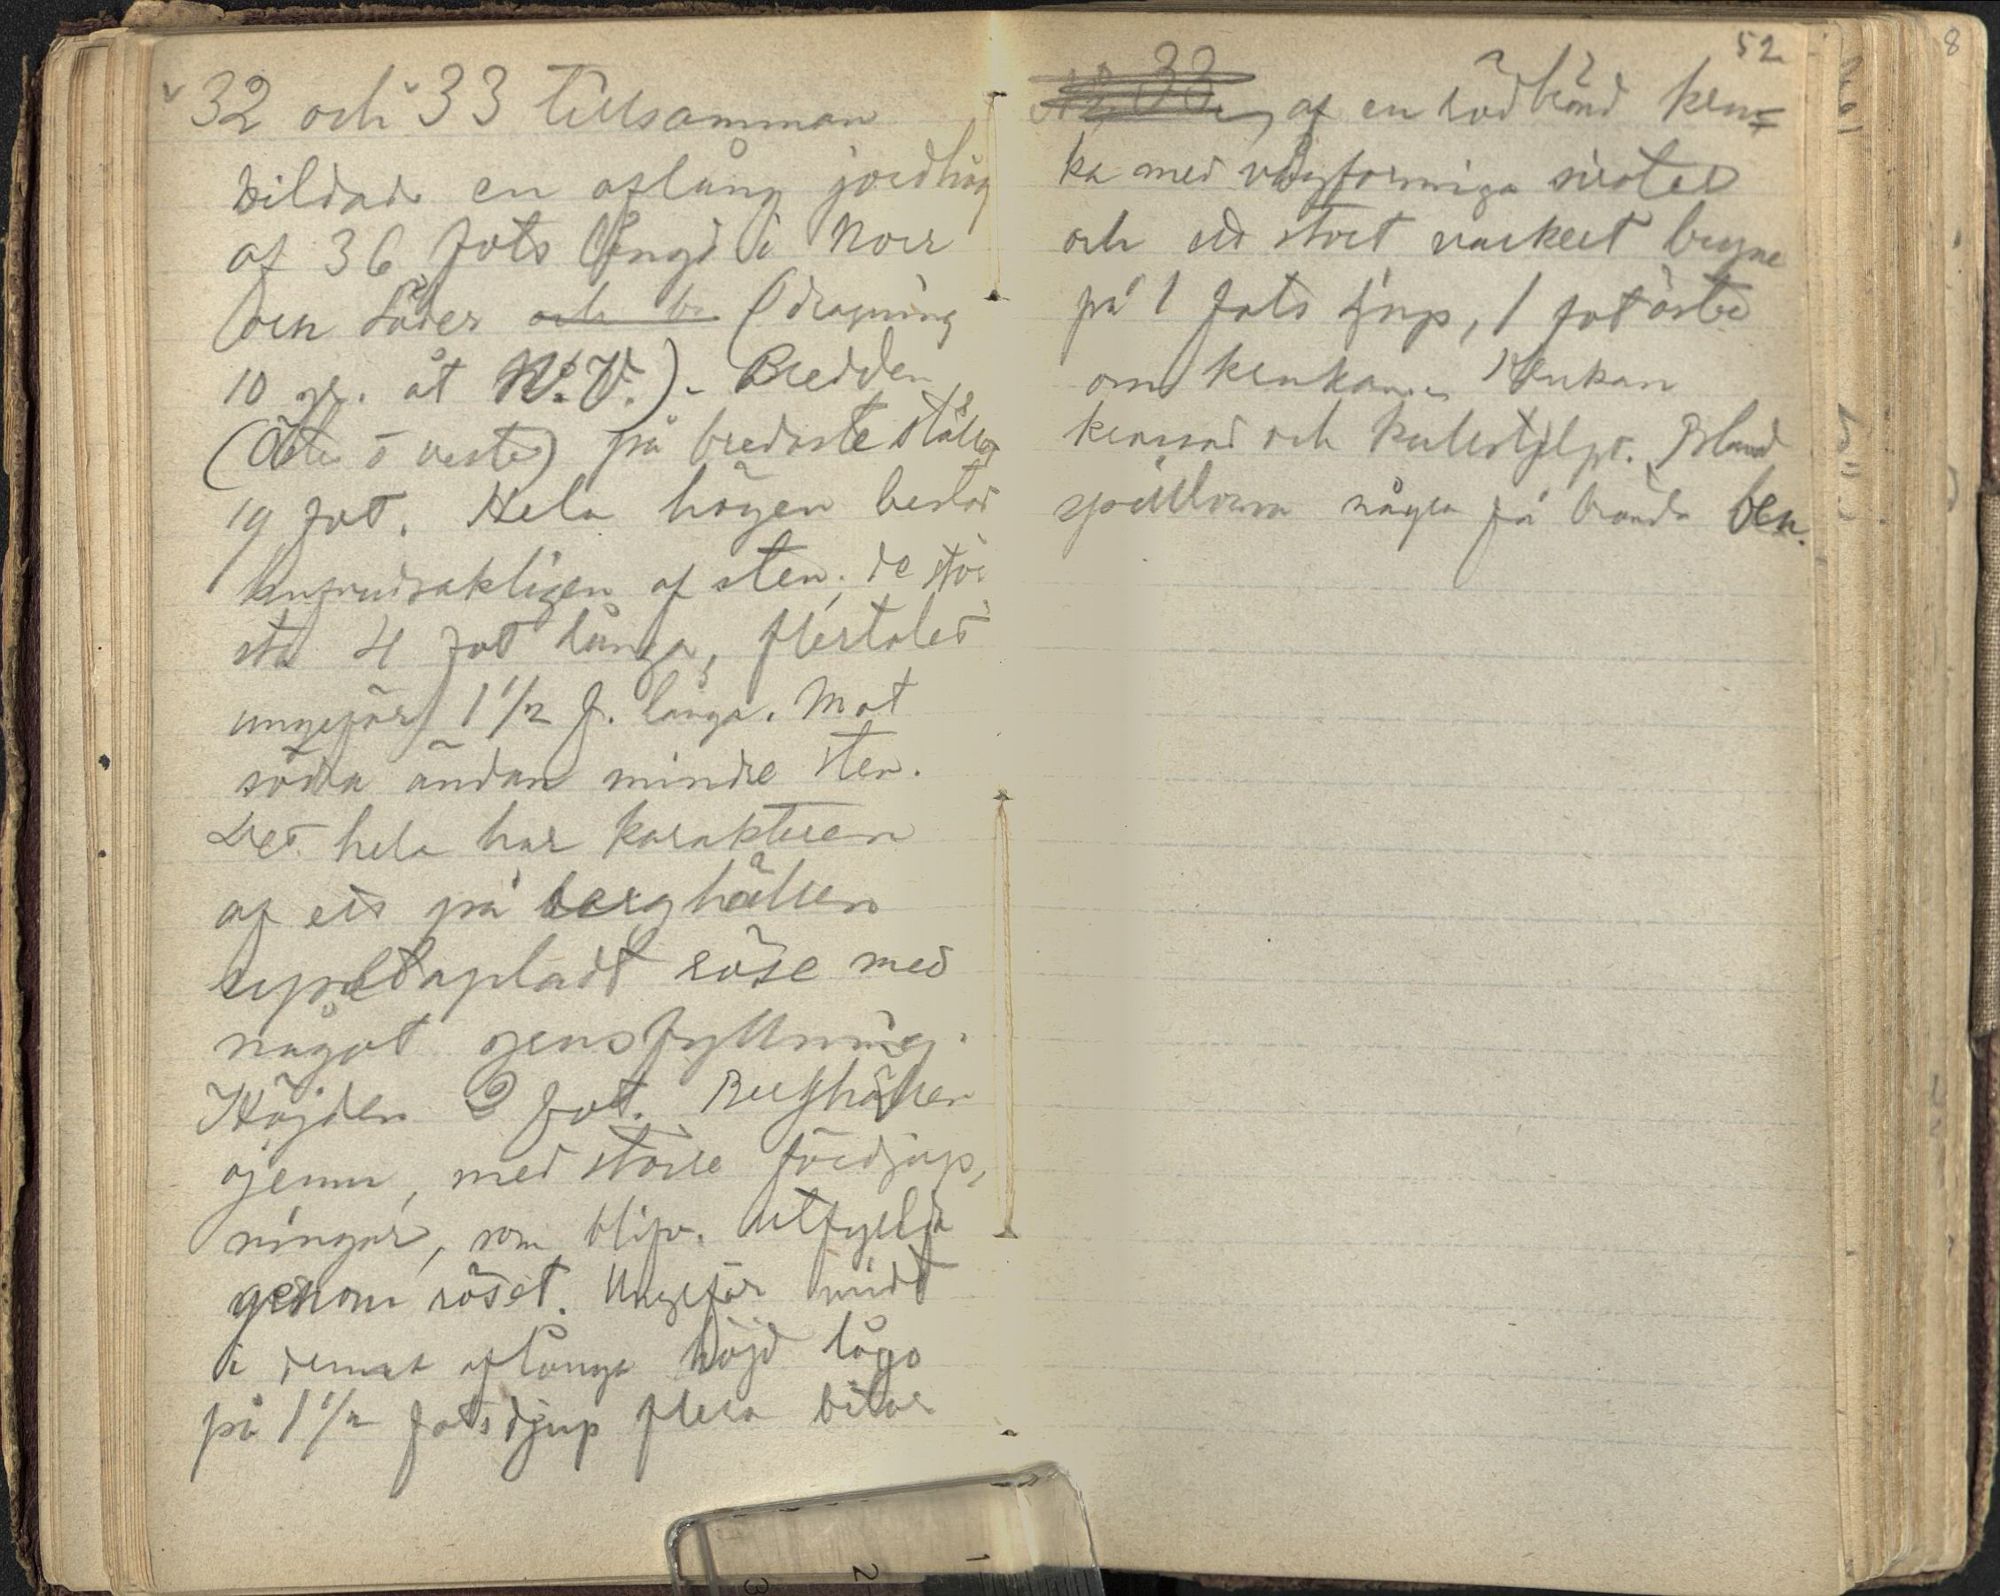 32 och 33 tillsamman
bildade en aflång jordhög
af 36 fots längd i Norr
och Söder och br (dragning
10 gr. åt N.V.). Bredden
(Öster o vester) på bredaste ställe
19 fot. Hela högen bestod
hufvudsakligen af sten; de stör
sta 4 fot långa, flertalet
ungefär 1 1/2 f. långa. Mot
södra ändan mindre sten.
Det hela har karakteren
af ett på berghällen
uppstapladt röse med
något grusfyllning.
Höjden 2 fot. Berghällen
ojemn, med större fördjup,
ningar, som blifv. utfyllda
genom röset. Ungefär midt
i denna aflånga höjd lågo
på 1 1/2 fots djup flera bitar
52
No 33 af en rödbränd kru=
ka med vågformiga sirater
och ett stort vackert bryne
på 1 fots djup, 1 fot öster
om krukan. Krukan
krossad och kullstjelpt. Bland
spillrorna några få brända ben.
8